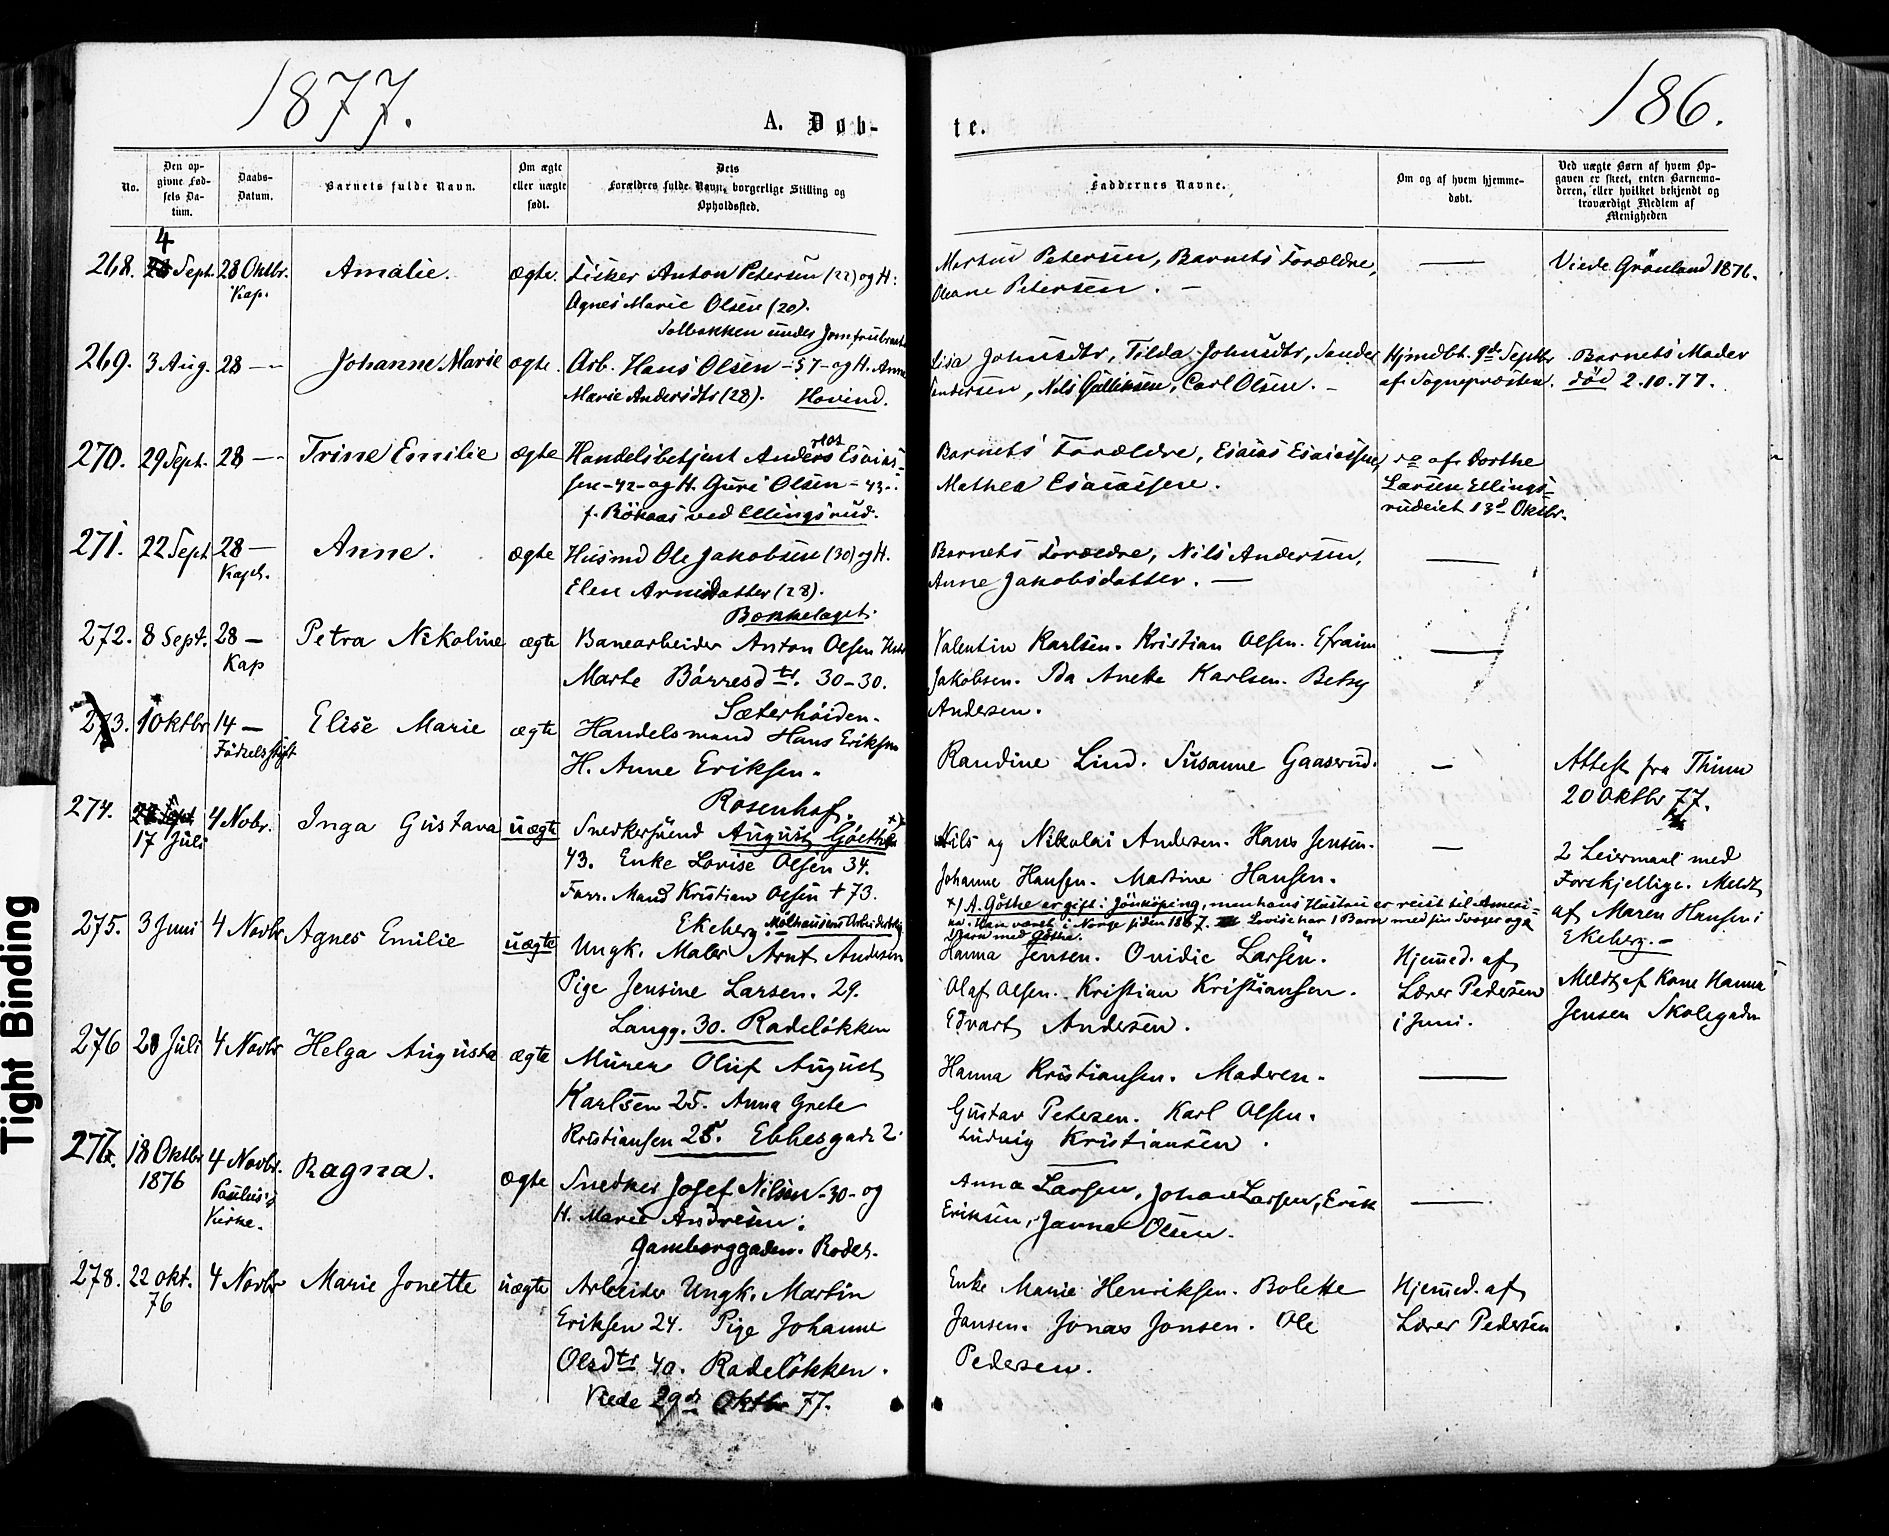 1877.
186.
A. Døb-
te.
No.
Den op-
givne Fød-
sels Da-
tum.
Daabs-
Datum.
Barnets fulde Navn.
Om ægte
eller uægte
født.
Dets
Forældres fulde Navn, borgerlige Stilling og
Opholdssted.
Faddernes Navne.
Om og af hvem hjemme-
døbt.
Ved uægte Børn af hvem Op-
gaven er skeet, enten Barnemo-
deren, eller hvilket bekjendt og
troværdigt Medlem af
Menigheden
268. 4 Sept. 28 Oktbr. Kap. Amalie. ægte.
Anton Petersen (22) og H.
Agnes Marie Olsen (20).
Solbakken under
Martin Petersen, Barnets Forældre,
Oleane Petersen. —
Viede Grönland 1876.
269. 3 Aug. 28 — Johanne Marie ægte.
Arb. Hans Olsen - 57 - og H. Anne
Marie Andersdtr (28). Hovind.
Lisa Johnsdtr, Tilda Johnsdtr, Sander
Andersen, Nils Gulliksen, Carl Olsen. —
Hjmdbt. 9de Septbr
af Sogneprösten.
Barnets Moder
död 2.10.77.
270. 29 Sept. 28 — Trine Emilie ægte
Handelsbetjent Anders Esaias-
sen - 42 - og H. Guri Olsen - 43 -
f. Rökaas ved Ellingsrud.
Barnets Forældre, Esaias Esaiassen,
Mathea Esaiassen.
af Dorthe
Larsen Ellings-
rudeiet 13d Oktbr.
271. 22 Sept. 28 — Kapel. Anne. ægte
Husmd Ole Jakobsen (30) og H.
Elen Arnesdatter (28).
Bækkelaget.
Barnets Forældre, Nils Andersen,
Anne Jakobsdatter. —
272. 8 Sept. 28 — Kap Petra Nikoline ægte
Banearbeider Anton Olsen Hstr
Marte Börresdtr. 30 - 30.
Sæterhöiden.
Valentin Karlsen. Kristian Olsen. Efraim
Jakobsen. Ida Anette Karlsen. Betsy
Andersen.
273. 1 Oktbr 14 — Födselsstift Elise Marie ægte
Handelsmand Hans Eriksen
H. Anne Eriksen.
Rosenhof.
Randine Lind. Susanne Gaasrud.
Attest fra Thime
20 Oktbr 77.
274. 17 Juli 4 Novbr. Inga Gustava uægte
Snedkersvend August Göethe x)
43. Enke Lovise Olsen 34.
Forr. Mand Kristian Olsen † 73.
Ekeberg.
Nils og Nikolai Andersen. Hans Jensen.
Johanne Hansen. Martine Hansen.
x) A. Göthe er gift i Jönköping, men hans Hustru er reist til Ameri-
ka. Han været i Norge siden 1867. Lovise har 1 Barn med sin Svoger og 2
Börn med Göthe.
2 Leiermaal med
Forskjellige. Meldt
af Maren Hansen i
Ekeberg. —
275. 3 Juni 4 Novbr Agnes Emilie uægte
Ungk. Maler Arnt Andersen
Pige Jensine Larsen. 29.
Langg. 30. Radelökken
Hanna Jensen. Ovidie Larsen.
Olaf Olsen. Kristian Kristiansen.
Edvart Andersen.
Hjemed. af
Lærer Pedersen
i Juni.
Meldt af Kone Hanna
Jensen Skolegaden
276 20 Juli 4 Novbr Helga Augusta ægte
Murer Oluf August
Karlsen 25. Anna Grete
Kristiansen 25. Ebbesgade 2.
Hanna Kristiansen. Madren.
Gustav Petersen. Karl Olsen.
Ludvig Kristiansen.
277. 18 Oktbr 1876 4 Novbr. Paulus Kirke. Ragna. ægte
Snedker Josef Nilsen - 30 - og
H. Marie Andresen.
Gamborggaden. Rodel.
Anna Larsen, Johan Larsen, Erik
Eriksen, Janna Olsen.
278. 22 Okt. 76 4 Novbr Marie Jonette uægte
Arbeider Ungk. Martin
Eriksen 24. Pige Johanne
Olsdtr 40. Radelökken.
Viede 29de Oktbr 77.
Enke Marie Henriksen. Bolette
Jansen. Jonas Jonsen. Ole
Pedersen.
Hjemed. af
Lærer Pedersen
Tight Binding